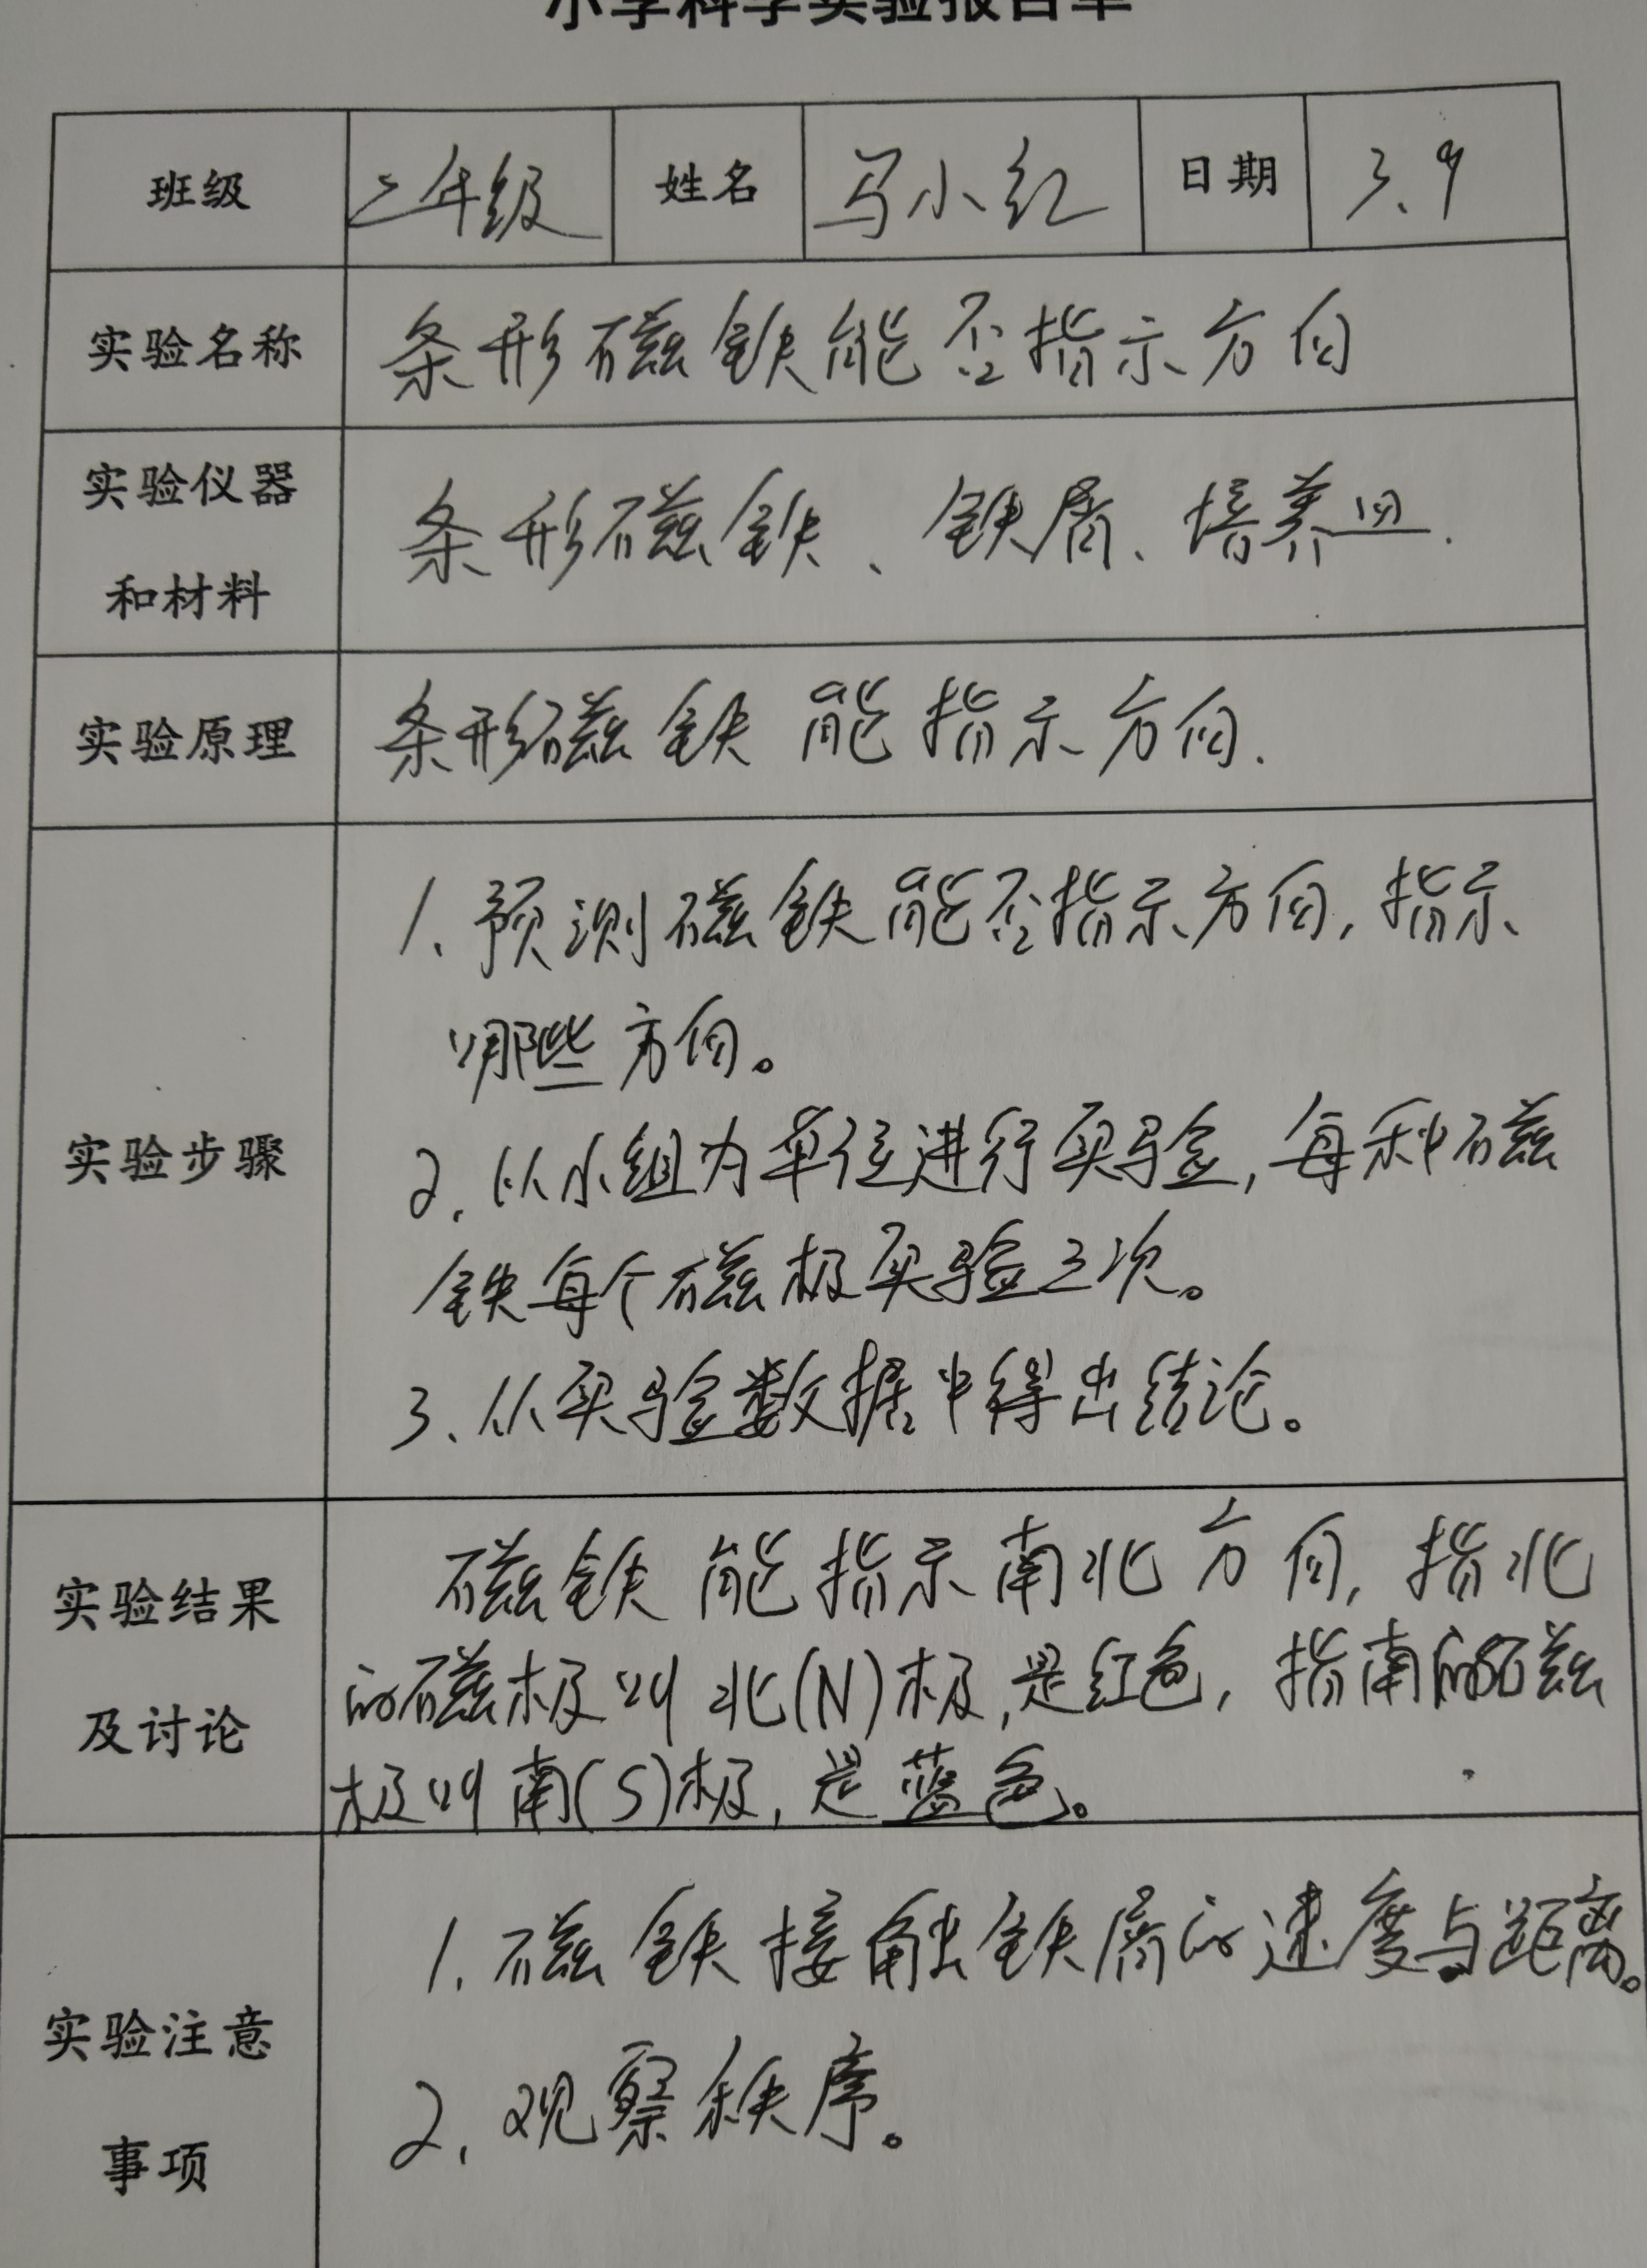 小学科学实验报告单
班级 二年级 姓名 马小红 日期 3.9
实验名称 条形磁铁能否指示方向
实验仪器
和材料
条形磁铁、铁屑、培养皿.
实验原理 条形磁铁能指示方向.
实验步骤
1、预测磁铁能否指示方向,指示
哪些方向。
2、以小组为单位进行实验,每种磁
铁每个磁极实验三次。
3、从实验数据中得出结论。
实验结果
及讨论
磁铁能指示南北方向,指北
的磁极叫北(N)极,是红色,指南的磁
极叫南(S)极,是蓝色。
实验注意
事项
1、磁铁接触铁屑的速度与距离。
2、观察秩序。